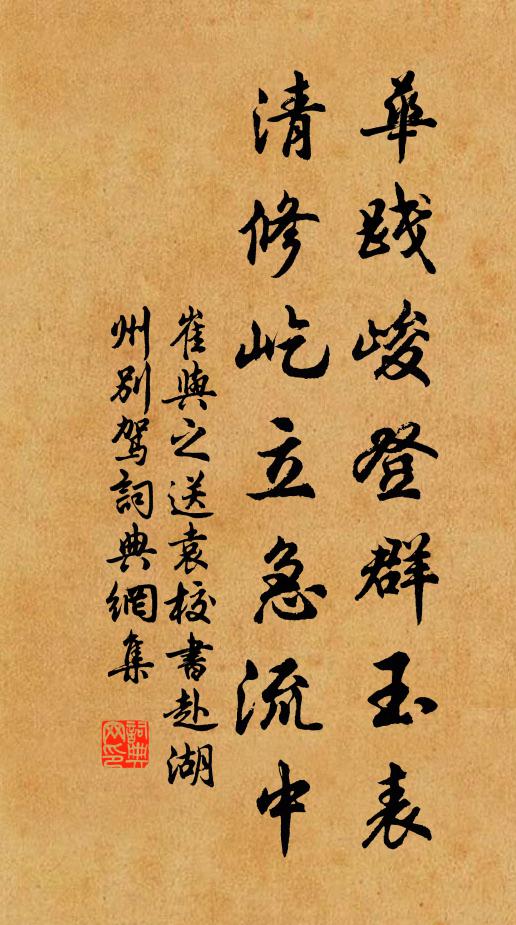 華践峻登群玉表
清修屹立急流中
崔與之送袁校書赴湖
州別駕詞典網集
詞典
网印